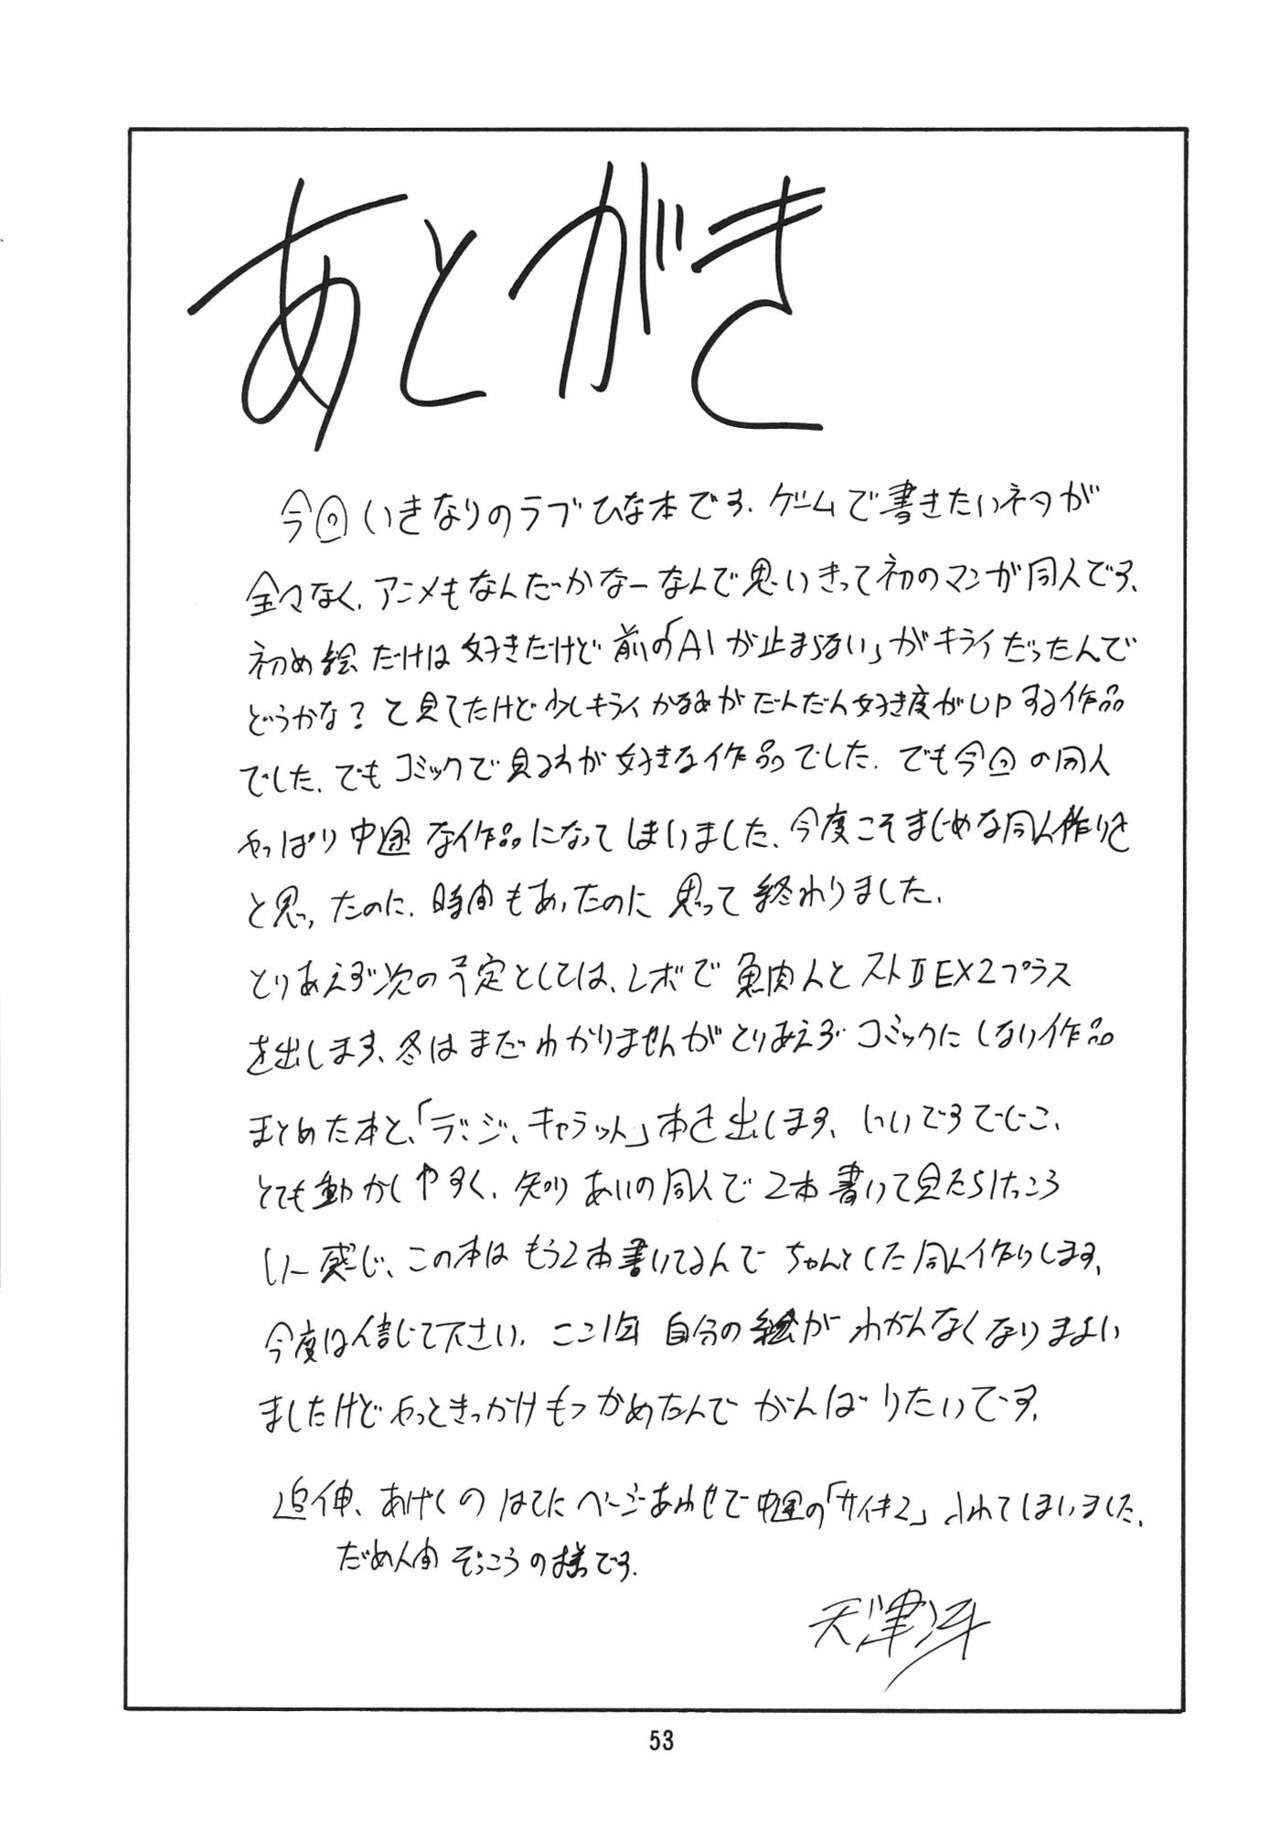 あとがき
今回いきなりのラブひな本です.ゲームで書きたいネタが
全々なく、アニメもなんだかなーなんで思いきって初のマンガ同人です、
初め絵だけは好きだけど前の「AIが止まらない」がキライだったんで
どうかな?と見てたけど少しキライかるみがだんだん好き度がUPする作品
でした、でもコミックで見るわが好きな作品でした.でも今回の同人
やっぱり中途な作品になってしまいました、今度こそまじめな同人作りを
と思ったのに、時間もあったのに思って終わりました、
とりあえず次の予定としては、レボで魚肉人とストⅡEX2プラス
を出します、冬はまだわかりませんがとりあえずコミックにしない作品
まとめた本と、「デ・ジ・キャラット」本を出します、いいですでじこ、
とても動かしやすく、知りあいの同人で2本書いて見たらけっこう
いー感じ、この本はもう2本書いてるんでちゃんとした同人作りします、
今度は信じて下さい、ここ1年 自分の絵がわかんなくなりまよい
ましたけどやっときっかけもつかめたんでがんばりたいです、
追伸、あげくのはてにページあわせで中途の「サイキ2」入れてしまいました、
だめ人間ぞっこうの様です.
天津冴
53